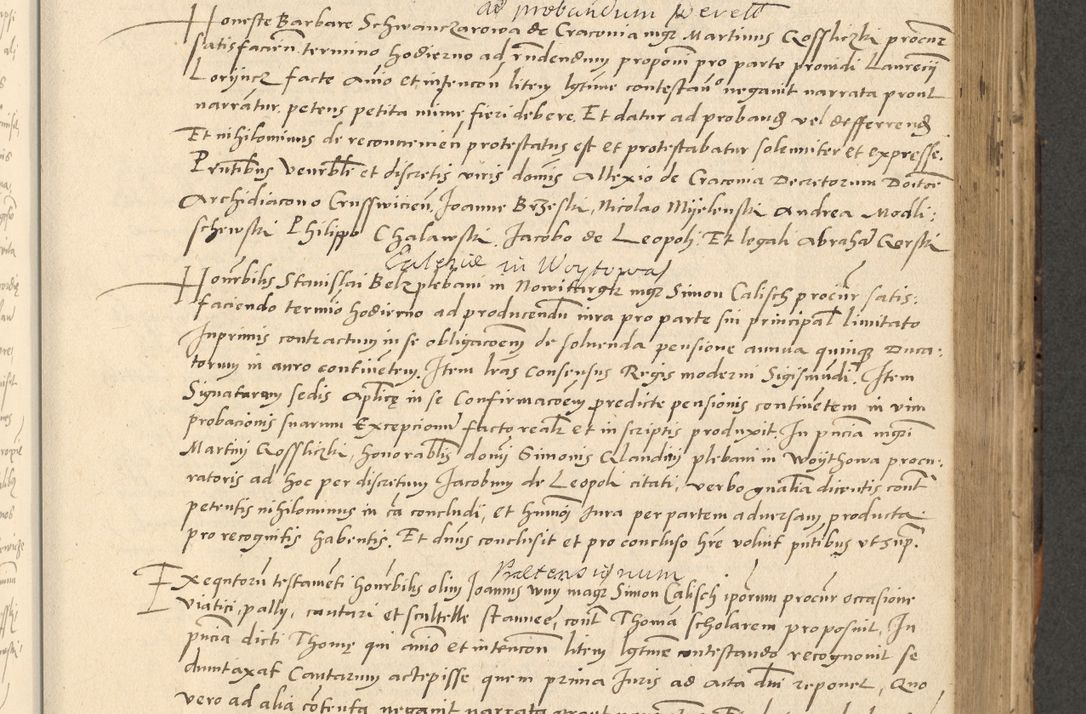 ad probandum
Honeste Barbare Schwanczarowa de Cracovia mgr Martinus Gosslicżki procur
satisfacien termino hodierno ad rndendum proponi pro parte providi Laurecij
Loryncz facte animo et intencon litem lgtime contestan negavit narrata prout
narrantur, petens petita mine fieri debere, Et datur ad proband vel defferrend
Et nihilominus de reconvencien protestatus est et protestabatur solemniter et expresse.
Pntibus venrbli et discretis viris domis Allexio de Cracovia Decretorum Doctore
Archidiacono Crusswicien, Joanne Brzeski, Nicolao Myslenski Andrea Modli:
schewski Philippo Chalawski, Jacobo de Leopoli Et legali Abraha Gorski
in Woytowa
Honrbilis Stanislai Belz plebani in Nowittargk mgr Simon Calisch procur satis:
faciendo termino hodierno ad producendu iura pro parte sui principal limitato
Inprimis contractum in se obligacoem de solvenda pensione annua quinq Duca:
torum in auro continetem, Item lras Consensus Regis moderni Sigismudi, Item
Signaturam sedis Aplice in se Confirmacoem predicte pensionis continetem in vim
probacionis suarum Excepcionu facto reales et in scriptis produxit. In pncia mgri
Martini Gosslicżki, honorablis domi Simonis Glandini plebani in Woythowa procu:
ratoris ad hoc per discretum Jacobum de Leopoli citati, verbo gnalia dicentis cont
petentis nihilominus in ca concludi, et hmoi Iura per partem adversam producta
pro recognitis habentis. Et dnus conclusit et pro concluso hre voluit pntibus ut sup.
Exequtoru testameti honrbilis olim Joannis magr Simon Calisch iporum procur occasione
viatici, pallij, cantari et scultelle stannee, cont Thoma scholarem proposuit, In
pncia dicti Thome qui animo et intencon litem lgtime contestando recognovit se
duntaxat Cantarum accepisse quem prima Juris ad acta dni reponet, Quo
vero ad alia contenta negavit narrata